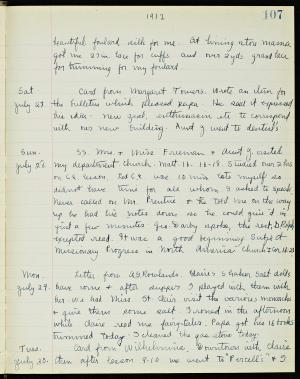 1912
107
beautiful foulard silk for me. At lining store mamma
got me 2 1/2 in. lace for cuffs and over 2 yds grand lace
for trimming for my foulard.
Sat. Card from Margaret Towers. Wrote an item for
July 27. the bulletin which pleased Papa. He said it expressed
his idea - new zeal, enthusiasm etc to correspond
with our new building. Aunt J went to dentist's.
Sun. SS Mrs & Miss Freeman & Aunt J visited
July 28. my department church. Matt 16:18. Studied over 2 hrs
on C.E. lesson. Led C.E. was 10 min late myself so
did not have time for all whom I asked to speak.
Never called on Mr. Prentice & he told me on the way
up he had his notes down so he could give it in
just a few minutes.
excepted read. It was a good beginning. Subject
Missionary Progress in North America
Mon. Letter from Rowlands. Claire's & Gaber Salt dolls
July 29. have come & after supper I played with them with
her. We had Miss St. Clair visit the various monarchs
& give them some salt. I ironed in the afternoon
while Claire read me fairytales. Papa got his 16 books
trimmed today. I cleaned the gas stove today.
Tues. Card from Wilhelmina. Downtown with Claire
July 30. then after lesson 8-10 we went to "Purcell's" & I